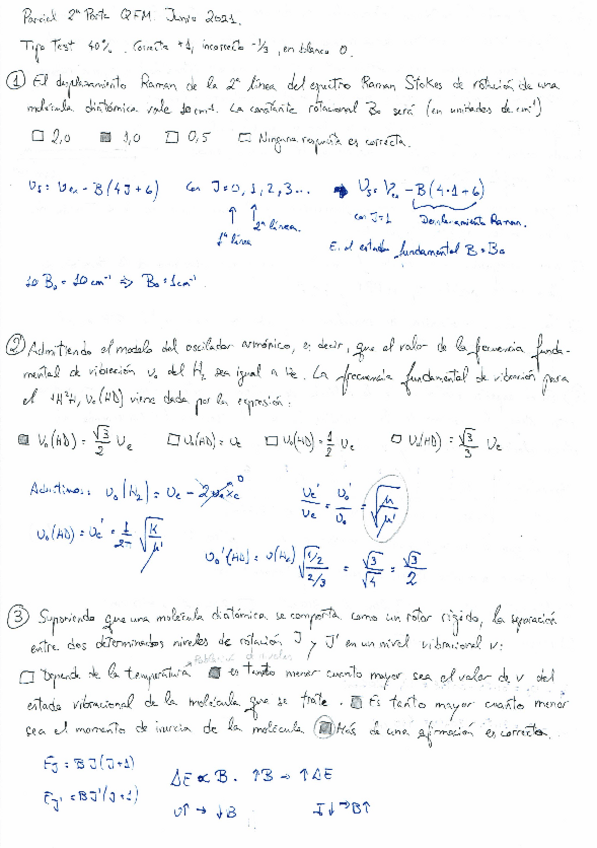 Parcial 2ª Parte QFM. Junio 2021.
Tipo Test 40%. Correcta +1, incorrecta -1/3, en blanco 0.
① El desplazamiento Raman de la 2ª línea del espectro Raman Stokes de rotación de una
molécula diatómica vale 10 cm⁻¹. La constante rotacional B₀ será (en unidades de cm⁻¹)
☐ 2,0 ■ 1,0 ☐ 0,5 ☐ Ninguna respuesta es correcta.
υs = υex - B(4J+6) con J=0, 1, 2, 3... → υs = υex - B(4·1+6)
1ª línea 2ª línea. con J=1 Desplazamiento Raman.
En el estado fundamental B=B₀
10 B₀ = 10 cm⁻¹ ⇒ B₀ = 1 cm⁻¹.
② Admitiendo el modelo del oscilador armónico, es decir, que el valor de la frecuencia funda-
mental de vibración υ₀ del H₂ sea igual a υe. La frecuencia fundamental de vibración para
el ¹H²H, υ₀(HD) viene dada por la expresión:
■ υ₀(HD) = √3/2 υe ☐ υ₀(HD) = υe ☐ υ₀(HD) = 1/2 υe ☐ υ₀(HD) = √3/3 υe
Admitimos: υ₀(H₂) = υe - 2υexe 0 υe'/υe = υ₀'/υ₀ = √(μ/μ')
υ₀(HD) = υe' = 1/2π √(K/μ')
υ₀'(HD) = υ(H₂) √(1/2 / 2/3) = √3/√4 = √3/2
③ Suponiendo que una molécula diatómica se comporta como un rotor rígido, la separación
entre dos determinados niveles de rotación J y J' en un nivel vibracional v:
Población de niveles
☐ Depende de la temperatura ■ es tanto menor cuanto mayor sea el valor de v del
estado vibracional de la molécula que se trate. ■ Es tanto mayor cuanto menor
sea el momento de inercia de la molécula ■ Más de una afirmación es correcta.
EJ = BJ(J+1)
ΔE ∝ B. ↑B → ↑ΔE
EJ' = BJ'(J+1)
υ↑ → ↓B I↓ → B↑